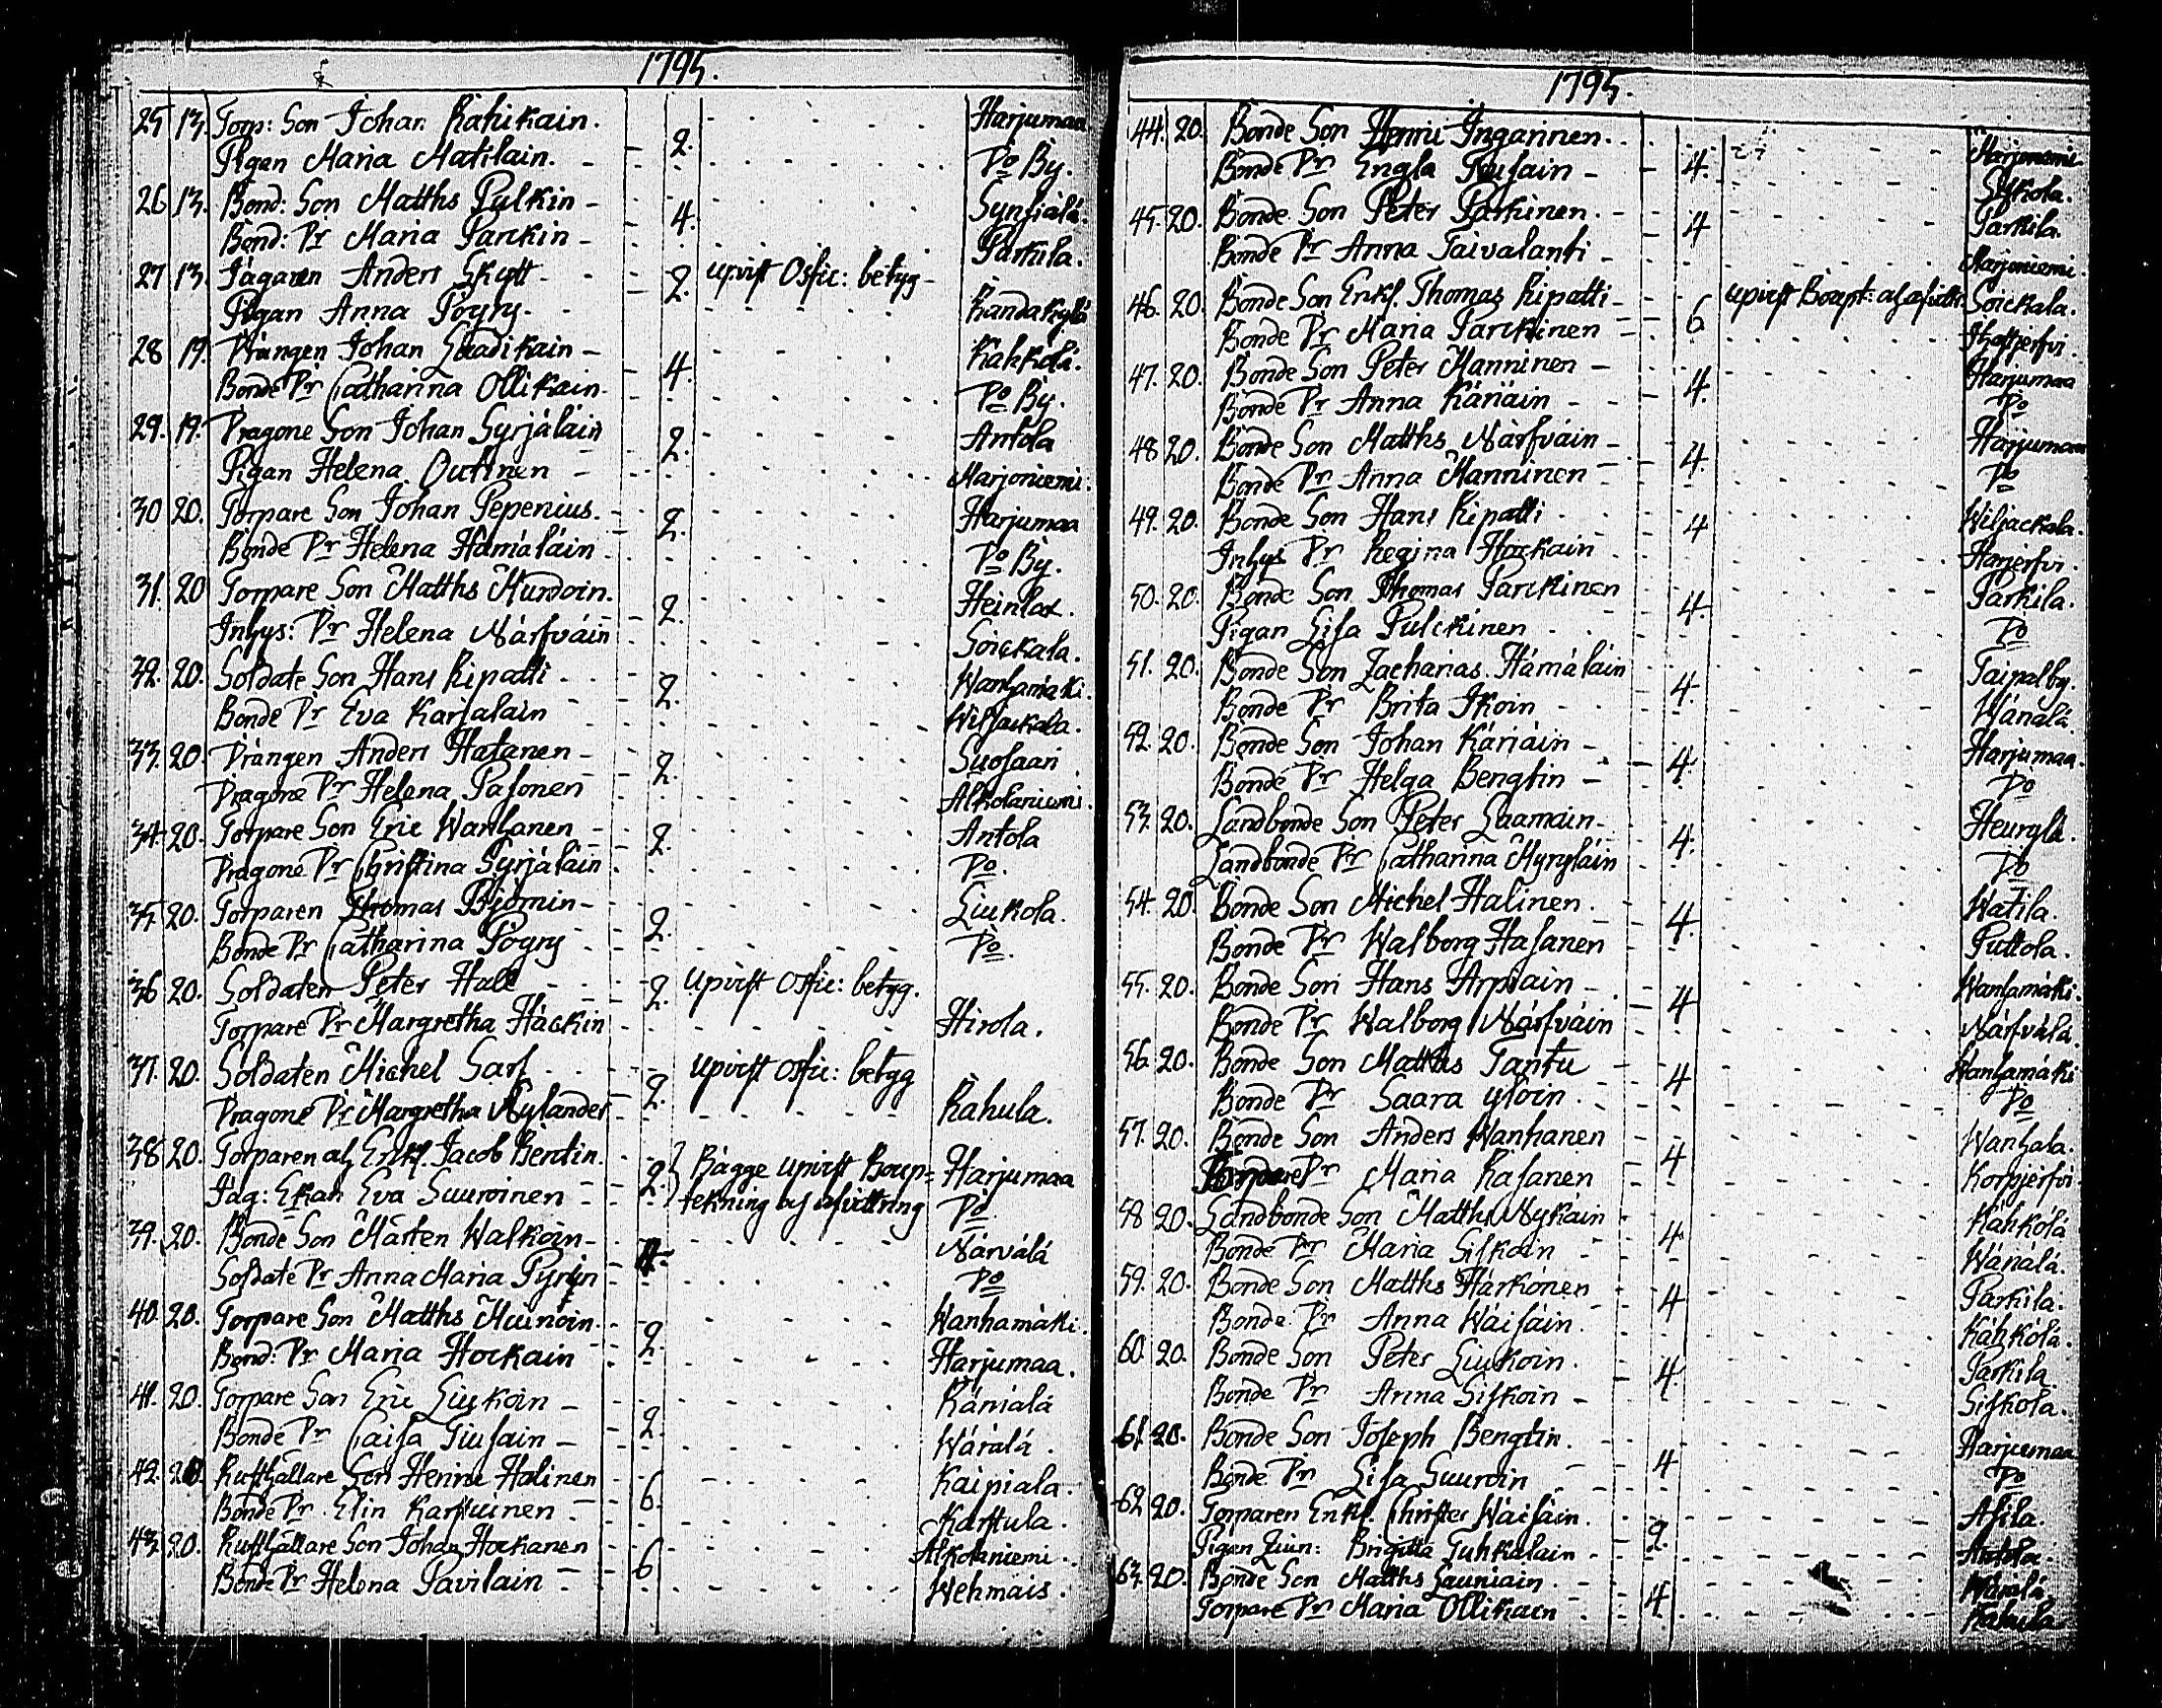 1795.
25 13. Torp: Son Johan Rahikain. 2. Harjumaa
Pigan Maria Matilain. Do By.
26 13. Bond: Son Matths Pulkin 4. Synsiälä.
Bond: Dr Maria Parckin Parkila.
27 13. Jägaren Anders Skytt 2. upvist Ofic: betyg
Pigan Anna Pöyry. Randakylä
28 19. Drängen Johan Laadikain 4. Kähkölä.
Bonde Dr Catharina Ollikain. Do By.
29. 19. Dragone Son Johan Syrjäläin 2. Antola
Pigan Helena Outinen Marjoniemi.
30 20. Torpare Son Johan Pepenius. 2. Harjumaa
Bonde Dr Helena Hämäläin Do By.
31. 20 Torpare Son Matths Murdoin. 2. Heinlax.
Inhys: Dr Helena Närfväin Soickala.
32. 20. Soldate Son Hans Ripatti 2. Wanhamäki.
Bonde Dr Eva Karjalain Wiljackala.
33. 20. Drängen Anders Hasanen 2. Suosaari
Dragone Dr Helena Pasonen Alkolaniemi.
34. 20. Torpare Son Eric Wanhanen 2. Antola
Dragone Dr Christina Syrjäläin Do.
35 20. Torparen Thomas Björnin 2. Liukola.
Bonde Dr Catharina Pöyry Do.
36 20. Soldaten Peter Hall 2. upvist Ofic: betyg.
Torpare Dr Margretha Häckin Hirola.
37. 20. Soldaten Michel Sarf 2. upvist Ofic: betyg
Dragone Dr Margretha Nylander Rahula.
38 20. Torparen och Enkl. Jacob Bentin. 2. Bägge upvist Boup= Harjumaa
Jäg: Ekan Eva Suuroinen tekning och afvittring Do
39. 20. Bonde Son Mårten Walkoin 4. Närvälä
Soldate Dr Anna Maria Pyryn Do
40. 20. Torpare Son Matths Muinoin. 2. Wanhamäki.
Bond: Dr Maria Hockain Harjumaa.
41. 20. Torpare Son Eric Liukoin 2. Käniälä
Bonde Dr Caisa Tiusain Wäralä.
42. 20. Rusthållare Son Henric Halinen 6. Kaipiala.
Bonde Dr Elin Karstuinen Karstula.
43. 20. Rusthållare Son Johan Hockanen 6 Alkolaniemi.
Bonde Dr Helena Pavilain Wehmais.
1795.
44. 20. Bonde Son Henric Ingarinen. 4. Marjoniemi
Bonde Dr Engla Tiusain
45. 20. Bonde Son Peter Parkinen. 4 Parkila.
Bonde Dr Anna Taivalanti Marjoniemi.
46. 20. Bonde Son Enkl. Thomas Ripatti 6. upvist Boupt: Soickala.
Bonde Dr Maria Parckinen
47. 20. Bonde Son Peter Manninen 4. Harjumaa
Bonde Dr Anna Käriäin Do
48 20. Bonde Son Matths Närfväin 4. Harjumaa
Bonde Dr Anna Manninen Do
49. 20. Bonde Son Hans Ripatti 4 Wiljackala.
Inhys Dr Regina Hockain Harjerfvi.
50. 20. Bonde Son Thomas Parckinen 4. Parkila.
Pigan Lisa Pulckinen Do
51. 20. Bonde Son Zacharias Hämäläin 4. Taipalby.
Bonde Dr Brita Ikoin Wänälä.
52. 20. Bonde Son Johan Käriäin 4. Harjumaa.
Bonde Dr Helga Bengtin Do
53. 20. Landbonde Son Peter Laamain 4. Heurylä.
Landbonde Dr Catharina Myryläin Do
54. 20. Bonde Son Michel Halinen. 4. Watila.
Bonde Dr Walborg Hasanen Puttola.
55. 20. Bonde Son Hans Arpiain 4 Wanhamäki.
Bonde Dr Walborg Närfväin Närfvälä.
56. 20. Bonde Son Matths Tanttu 4 Wanhamäki
Bonde Dr Saara Ylöin. Do
57. 20. Bonde Son Anders Wanhanen 4 Wanhala.
Dr Maria Rasanen Korpjerfvi.
58 20. Landbonde Son Matths Nykäin 4. Kähkölä
Bonde Dr Maria Siskoin Wänälä.
59. 20. Bonde Son Matths Härkönen 4 Parkila.
Bonde Dr Anna Wäisäin. Kähkölä.
60. 20. Bonde Son Peter Liukoin. 4. Parkila.
Bonde Dr Anna Siskoin Siskola.
61. 20. Bonde Son Joseph Bengtin. 4 Harjumaa
Bonde Dr Lisa Suuroin Do
62 20. Torparen Enkl. Christer Wäisäin. 2. Asila.
Pigan Brigitta Tuhkalain Antola.
63. 20. Bonde Son Matths Launiain. 4. Wäralä
Torpare Dr Maria Ollikain Rahula